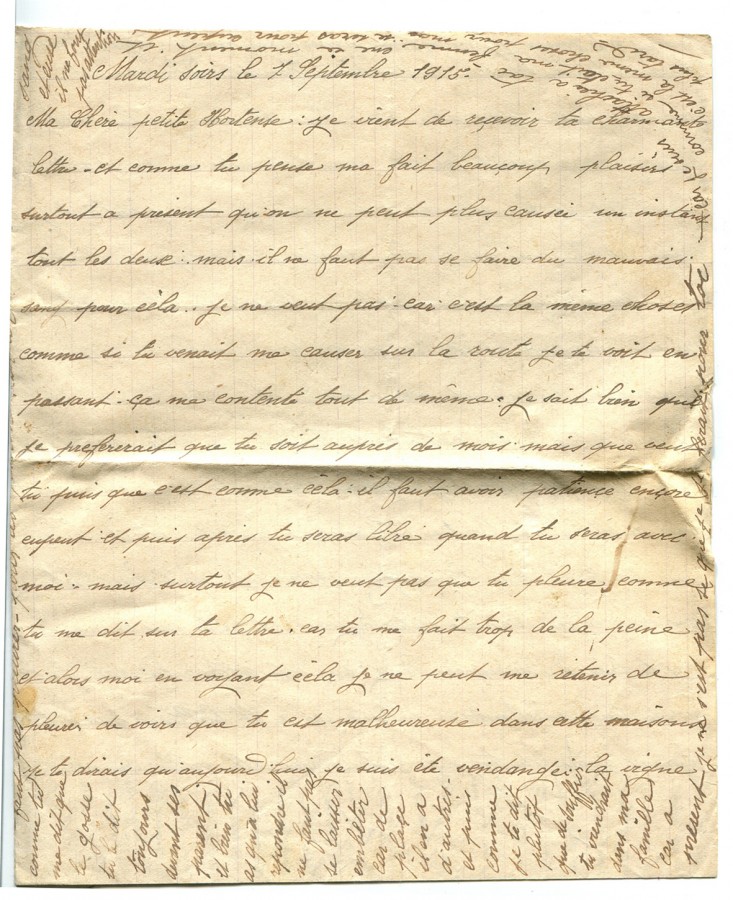 Mardi soirs le 7 Septembre 1915.
Ma Chère petite Hortense : Je vient de reçevoir ta charmante
lettre - et comme tu pense me fait beaucoup plaisirs
surtout a présent qu'on ne peut plus causer un instant
tout les deux. mais il ne faut pas se faire du mauvais
sang pour cèla.. je ne veut pas car c'est la même choses
comme si tu venait me causer sur la route je te voit en
passant - ça me contente tout de même. Je sait bien que
je preférérait que tu soit auprès de mois mais que veut
tu puis que c'est comme cèla. il faut avoir patiençe ençore
eupeut et puis après tu seras libre quand tu seras avec
moi - mais surtout je ne veut pas que tu pleure, comme
tu me dit sur ta lettre. car tu me fait trop de la peine
et alors moi en voyant cèla je ne peut me retenir de
pleurer de voirs que tu est malheureuse dans cette maisons
Je te dirais qu'aujourd'hui je suis été vendanger la vigne
comme tu
me dit que
le gosse
tu le dit
toujours
devant ses
parent
et bien tu
as qu'a lui
repondre et
ne faut pas
se laisser
embêter
car de
plase
il en a
d'autres
et puis
comme
je te dit
plutot
que de suffrir
tu viendrait
dans ma
famille
car a
present je ne s'est pas se que je ferait pour toi
car je suis
comme si tu étai ma femme
c'est la même choses pour moi
plus tard
et puis
il ne faut
pas attention